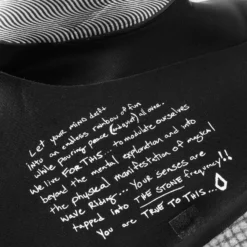 Let your mind drift
Into an endless rainbow of fun
while pouring peace (intense) all over.
We live FOR THIS... to modulate ourselves
beyond the mental exploration and into
the physical manifestation of magical
Wave Riding... Your senses are
tapped into THE STONE frequency!!
You are TRUE TO THIS...